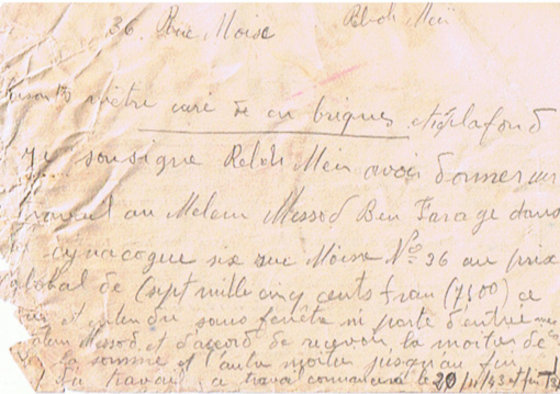 36. Rue Moise Reboh Meir
mètre caré de en briques et plafond
Je sousigne Reboh Meir avoir donner un
travail au Melem Messod Ben Farage dans
cynacogue six rue Moïse N° 36 au prix
global de (sept mille cinq cents fran (7500) ce
et entendu sans fenêtre ni porte d'entrée
Messod et d'acord de recevoir la moitier de
la somme et l'autre moitier jusqu'au fin
du travail ce travail commencera le 20/11/43 et fin